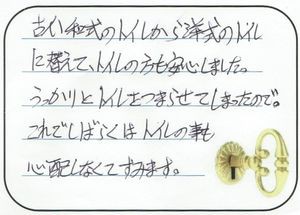 古い和式のトイレから洋式のトイレ
に替えて、トイレの方も安心しました。
うっかりとトイレをつまらせてしまったので。
これでしばらくはトイレの事も
心配しなくてすみます。